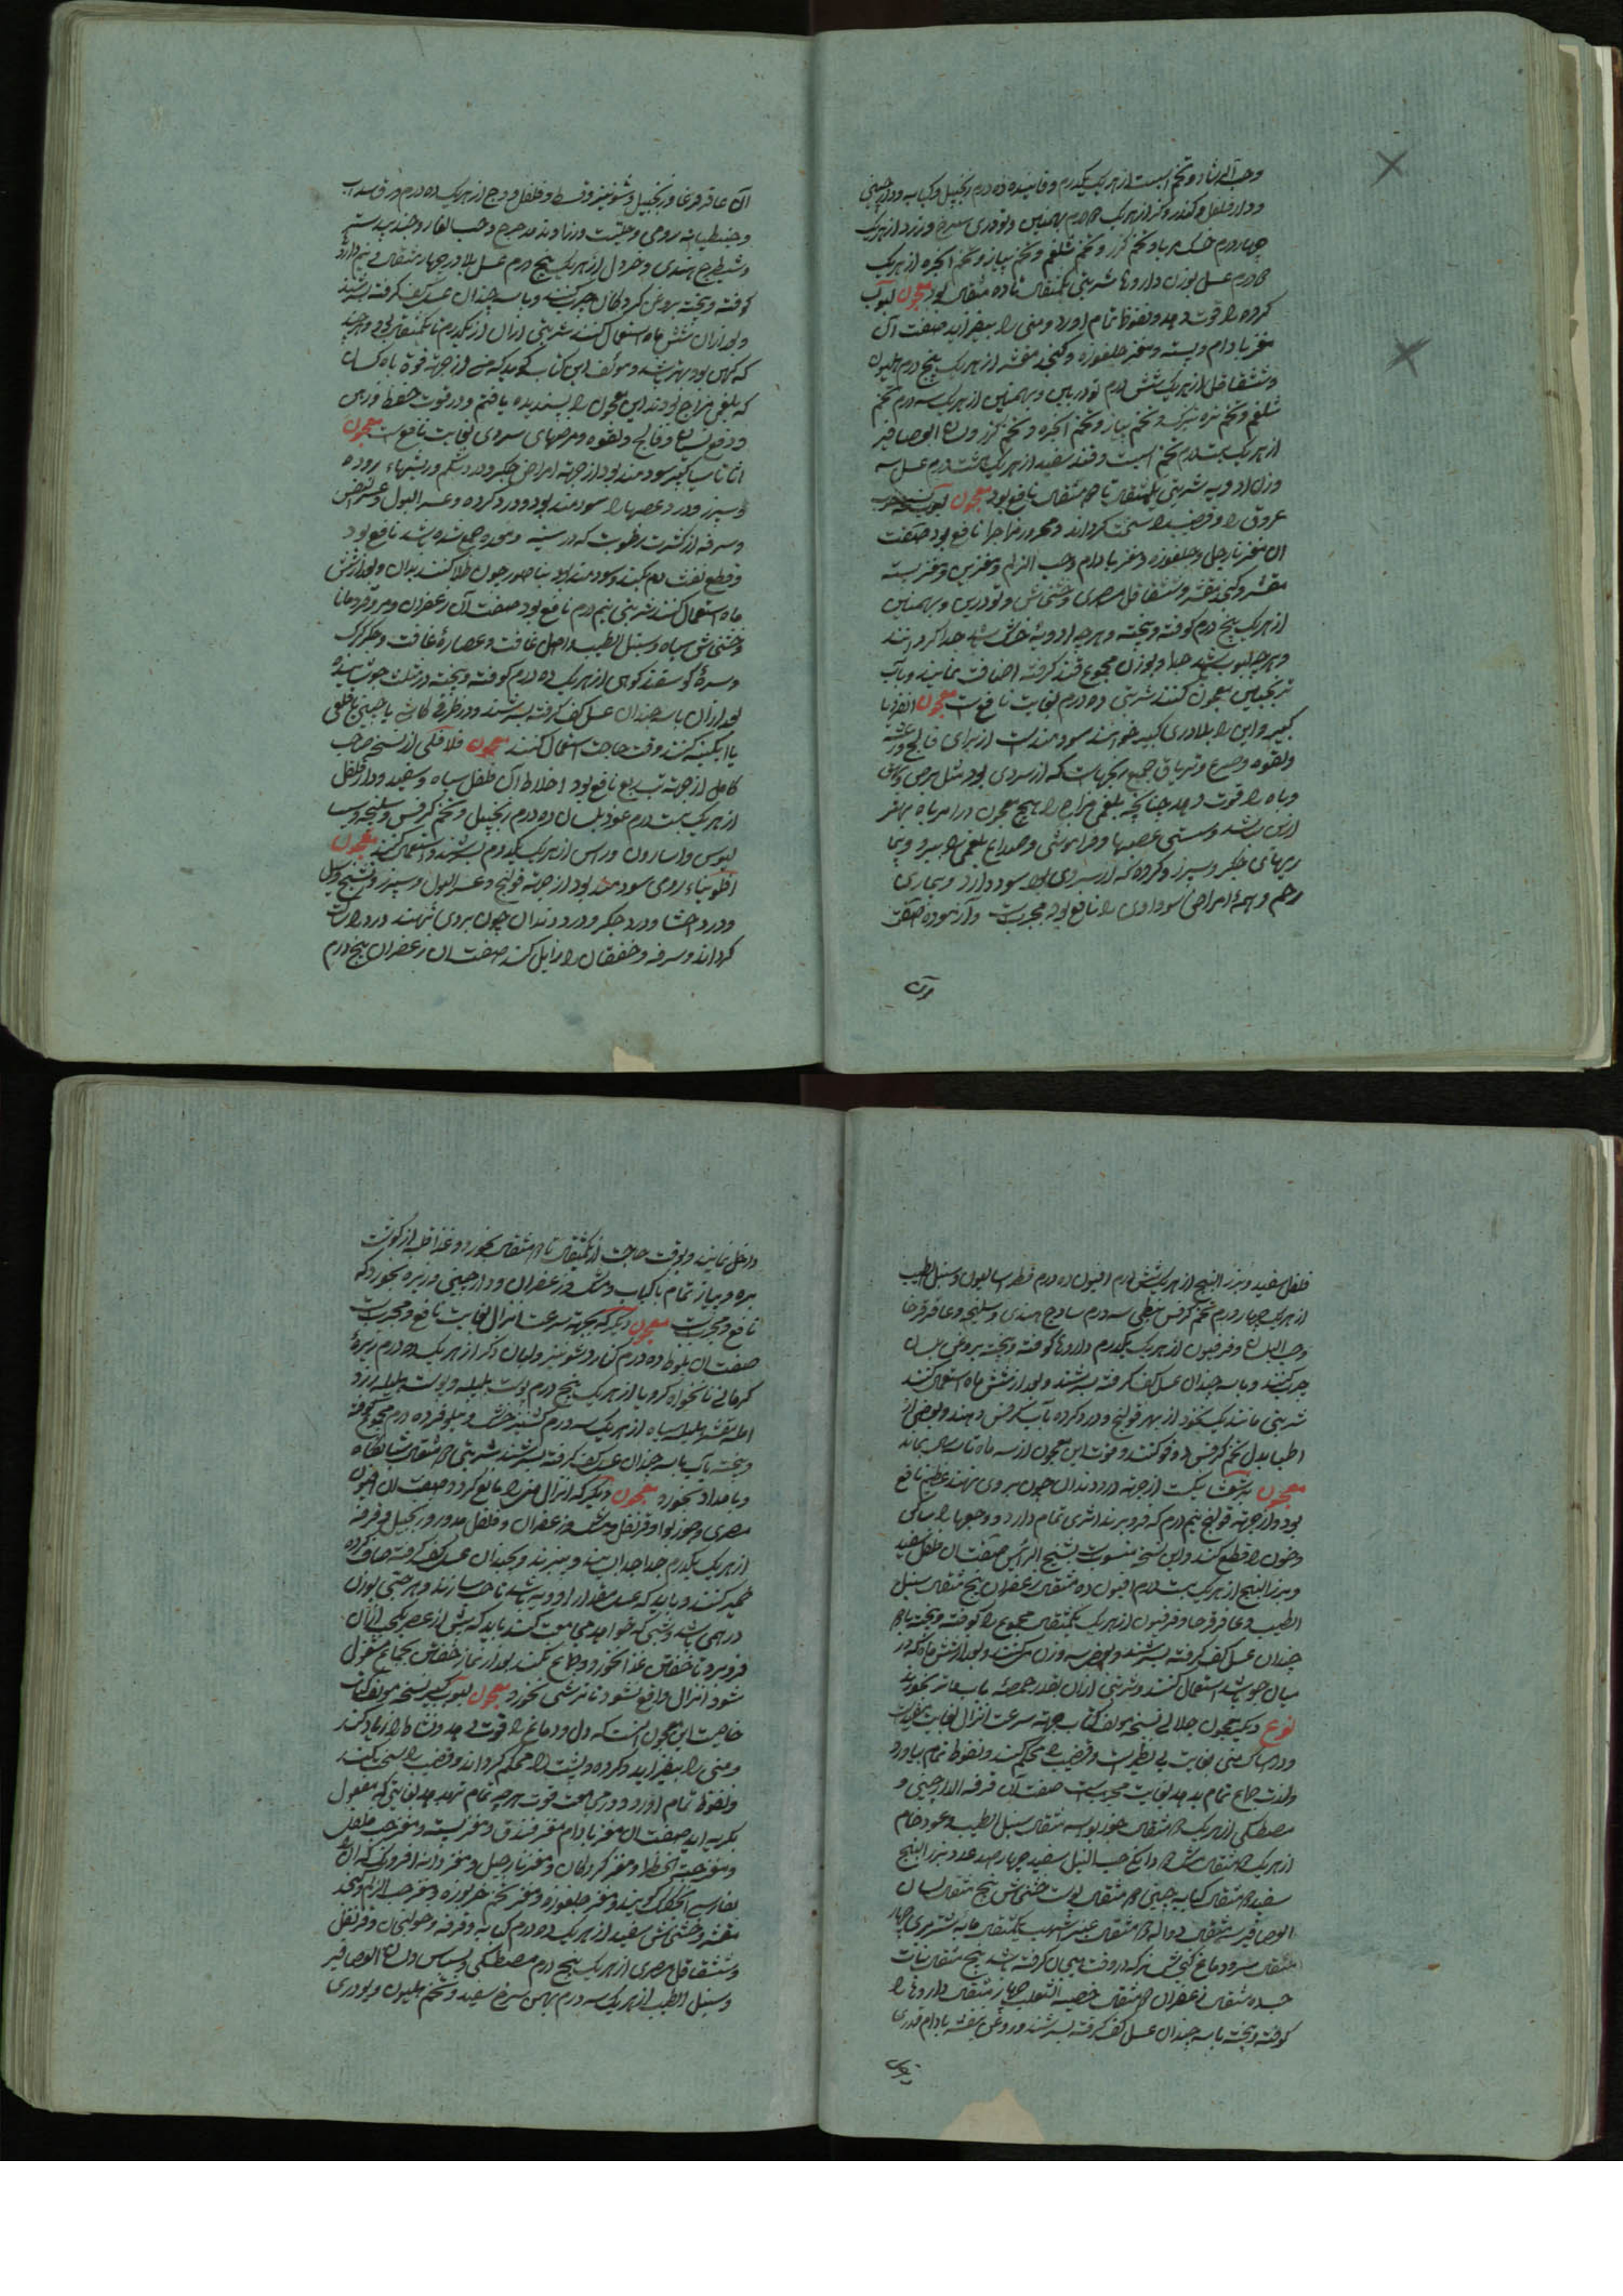 وحب الرشاد و تخم اسبست از هر یک یکدرم و فانیذ ده درم زنجبیل و کبابه و دارچینی
و دار فلفل و کندر و گز از هر یک درم بهمنین و تودری سرخ و زرد از هر یک
چهار درم خسک مربا و تخم گزر و تخم شلغم و تخم پیاز و تخم انجره از هر یک
درم عسل بوزن داروها شربتی یکمثقال تا ده مثقال بود معجون لبوب
کرده را قوت دهد و نعوظ تمام آورد و منی را بیفزاید صفت آن
مغز بادام و پسته و مغز جلغوزه و کنجد مقشر از هر یک پنج درم هلیون
و شقاقل از هر یک شش درم تودریین و بهمنین از هر یک سه درم تخم
شلغم و تخم تره تیزک و تخم پیاز و تخم انجره و تخم گزر و لسان العصافیر
از هر یک بیست درم تخم اسبست و قند سفید از هر یک هشت درم عسل سه
وزن ادویه شربتی یکمثقال تا مثقال نافع بود معجون لبوب
عروق را و قضیب را سخت گرداند و محرور مزاج را نافع بود صفت
آن مغز نارجیل و جلغوزه و مغز بادام و حب الزلم و مغز پسته
مقشر و کنجد مقشر و شقاقل مصری و خشخاش و تودریین و بهمنین
از هر یک پنج درم کوفته و بیخته و هر چه ادویه خشک باشد جدا گردانند
و هر چه لبوب باشد جدا و بوزن مجموع قند گرفته اضافت نمایند و بآب
ترنجبین معجون کنند شربتی ده درم بغایت نافع است معجون انقرویا
کبیر و این را بلادری کبیر خوانند سودمند است از برای فالج و رعشه
و لقوه و صرع و تریاق جمیع رنجهاست که از سردی بود مثل برص و بهق
و باه را قوت دهد چنانچه بلغمی مزاج را هیچ معجون در امر باه بهتر
ازین نباشد و سستی عصبها و فراموشی و صداع بلغمی ببرد
ریحهای جگر و سپرز و گرده که از سردی بود سود دارد و بیماری
رحم و همه امراض سوداوی را نافع بود مجرب است و آزموده صفت
آن
آن عاقرقرحا و زنجبیل و شونیز و قسط و فلفل و وج از هر یک ده درم ورق سداب
و جنطیانا رومی و حلتیت و زراوند مدحرج و حب الغار و جندبیدستر
و شیطرج هندی و خردل از هر یک پنج درم عسل بلادر چهار مثقال و نیم دارو
کوفته و بیخته بروغن گردکان چرب کنند و با سه چندان عسل کف گرفته بسرشند
و بعد از آن شش ماه استعمال کنند شربتی از آن از یکدرم تا یکمثقال بود و هر چند
که کهن بود بهتر باشد و مؤلف این کتاب گوید که من از جهة قوة باه کسانی
که بلغمی مزاج بودند این معجون را پسندیده یافتم و در قوت حفظ و ذهن
و دفع نسیان و فالج و لقوه و مرضهای سردی بغایت نافع است معجون
اثاناسیا کبیر سودمند بود از جهة امراض جگر و درد شکم و ریشهاء روده
و سپرز و درد عصبها را سودمند بود و درد گرده و عسر البول و عسر النفس
و سرفه از کثرت رطوبت که در سینه و معده جمع شده باشد نافع بود
و قطع نفث دم بکند و سودمند بود بناصور چون طلا کنند بدان و بعد از شش
ماه استعمال کنند شربتی نیم درم نافع بود صفت آن زعفران و مر و قردمانا
و خشخاش سیاه و سنبل الطیب و اصل غافت و عصاره غافت و جگر گرگ
و سرو گوسفند کوهی از هر یک ده درم کوفته و بیخته در مثلث جوشانیده
بعد از آن با سه چندان عسل کف گرفته بسرشند و در ظرفی کاشی یا چینی یا قلعی
یا آبگینه کنند وقت حاجت استعمال کنند معجون فلافلی از نسخ صاحب
کامل از جهة تب ربع نافع بود اخلاط آن فلفل سیاه و سفید و دار فلفل
از هر یک بیست درم عود بلسان ده درم زنجبیل و تخم کرفس و سلیخه و سیسا
لیوس و اسارون و راسن از هر یک یکدرم بسرشند و استعمال کنند معجون
افلونیاء رومی سودمند بود از جهة قولنج و عسر البول و سپرز و تشنج و سل
و درد احشا و درد جگر و درد دندان چون بروی نهند درد را ساکن
گرداند و سرفه و خفقان را زایل کند صفت آن زعفران پنج درم
فلفل سفید و بزر البنج از هر یک شش درم افیون ده درم فطراسالیون و سنبل الطیب
از هر یک چهار درم تخم کرفس نبطی سه درم ساذج هندی و سلیخه و عاقرقرحا
وحب البلسان و فرفیون از هر یک یکدرم داروها کوفته و بیخته بروغن بلسان
چرب کنند و با سه چندان عسل کف گرفته بسرشند و بعد از شش ماه استعمال کنند
شربتی مانند یک نخود از بهر قولنج و درد گرده بآب کرفس دهند و بعضی از
اطبا بدل تخم کرفس دوقو کنند و قوت این معجون از سه ماه تا سه سال بماند
معجون برشعثا نیکست از جهة درد دندان چون بروی نهند عظیم نافع
بود و از جهة قولنج نیم درم که فرو برند اثری تمام دارد و وجعها را ساکن
و خون را قطع کند و این نسخه منسوبست بشیخ الرئیس صفت آن فلفل سفید
و بزر البنج از هر یک بیست درم افیون ده مثقال زعفران پنج مثقال سنبل
الطیب و عاقرقرحا و فرفیون از هر یک یکمثقال مجموع را کوفته و بیخته با سه
چندان عسل کف گرفته بسرشند و بعضی سه وزن کنند و بعد از شش ماه که در
میان جو باشد استعمال کنند و شربتی از آن بقدر حمصه باب فاتر بخورند
نوع دیگر معجون جلالی نسخه مؤلف کتاب جهة سرعت انزال بغایت مفیدست
و در امساک منی بغایت بی نظیرست و قضیب را محکم کند و نعوظ تمام بیاورد
و لذت جماع تمام بدهد بغایت مجربست صفت آن قرفه الدارچینی و
مصطکی از هر یک مثقال جوز بوا سه مثقال سنبل الطیب و عود خام
از هر یک مثقال مشک دانگ حب النیل سفید چهارصد عدد بزر البنج
سفید مثقال کبابه چینی مثقال پوست خشخاش پنج مثقال لسان
العصافیر سه مثقال دواله مثقال عنبر اشهب یکمثقال مایه شتر بری چهار
مثقال سر و دماغ گنجشک نر که در وقت هیجان گرفته باشد پنج مثقال نبات
سه مثقال زعفران مثقال خصیة الثعلب چهار مثقال داروها را
کوفته و بیخته با سه چندان عسل کف گرفته بسرشند و روغن بنفشه بادام قدری
داخل نمایند و بوقت حاجت از یکمثقال تا مثقال بخورد و غذا قلیه از گوشت
بره و پیاز تمام با کباب و مشک و زعفران و دارچینی و زیره بخورد که
نافع و مجربست معجون دیگر که بجهة سرعت انزال بغایت نافع و مجربست
صفت آن بلوط ده درم کنار و شونیز و لبان ذکر از هر یک ده درم زیره
کرمانی نانخواه کرویا از هر یک پنج درم پوست بلیله و پوست هلیله زرد
امله مقشر هلیله سیاه از هر یک سه درم گشنیز خشک و نیلوفر ده درم مجموع کوفته
و بیخته باب با سه چندان عسل کف گرفته بسرشند شربتی مثقال شبانگاه
و بامداد بخورد معجون دیگر که انزال منی را مانع گردد صفت آن افیون
مصری و جوز بوا و قرنفل و مشک و زعفران و فلفل مدور و زنجبیل و قرفه
از هر یک یکدرم جدا جدا بسایند و ببیزند و بچندان عسل کف گرفته صاف کرده
خمیر کنند و باید که عسل مقدار ادویه باشد تا حب سازند و هر حبی بوزن
درهمی باشد و شبی که خواهد مجامعت کند باید که پیش از عصر یکی از آن
فرو برد و تا خفتن غذا نخورد و جماع نکند بعد از نماز خفتن بجماع مشغول
شود انزال واقع نشود تا ترشی نخورد معجون لبوب کبیر نسخه مؤلف کتاب
خاصیت این معجون آنست که دل و دماغ را قوت دهد و نشاط را زیاد کند
و منی را بیفزاید و گرده و پشت را محکم گرداند و قضیب را سخت کند
و نعوظ تمام آورد و در مجامعت قوت هر چه تمام تر دهد بغایتی که مفعول
بگریه آید صفت آن مغز بادام مغز فندق و مغز پسته و مغز حب فلفل
و مغز حبة الخضرا و مغز گردکان و مغز نارجیل و مغز دانه افرونک که آن را
بفارسی گویند و مغز جلغوزه و مغز تخم خربوزه و مغز حب الزلم و کنجد
مقشر و خشخاش سفید از هر یک ده درم کبابه و قرفه و خولنجان و قرنفل
و شقاقل مصری از هر یک پنج درم مصطکی و بسباس و لسان العصافیر
و سنبل الطیب از هر یک سه درم بهمن سرخ سفید و تخم هلیون و تودری